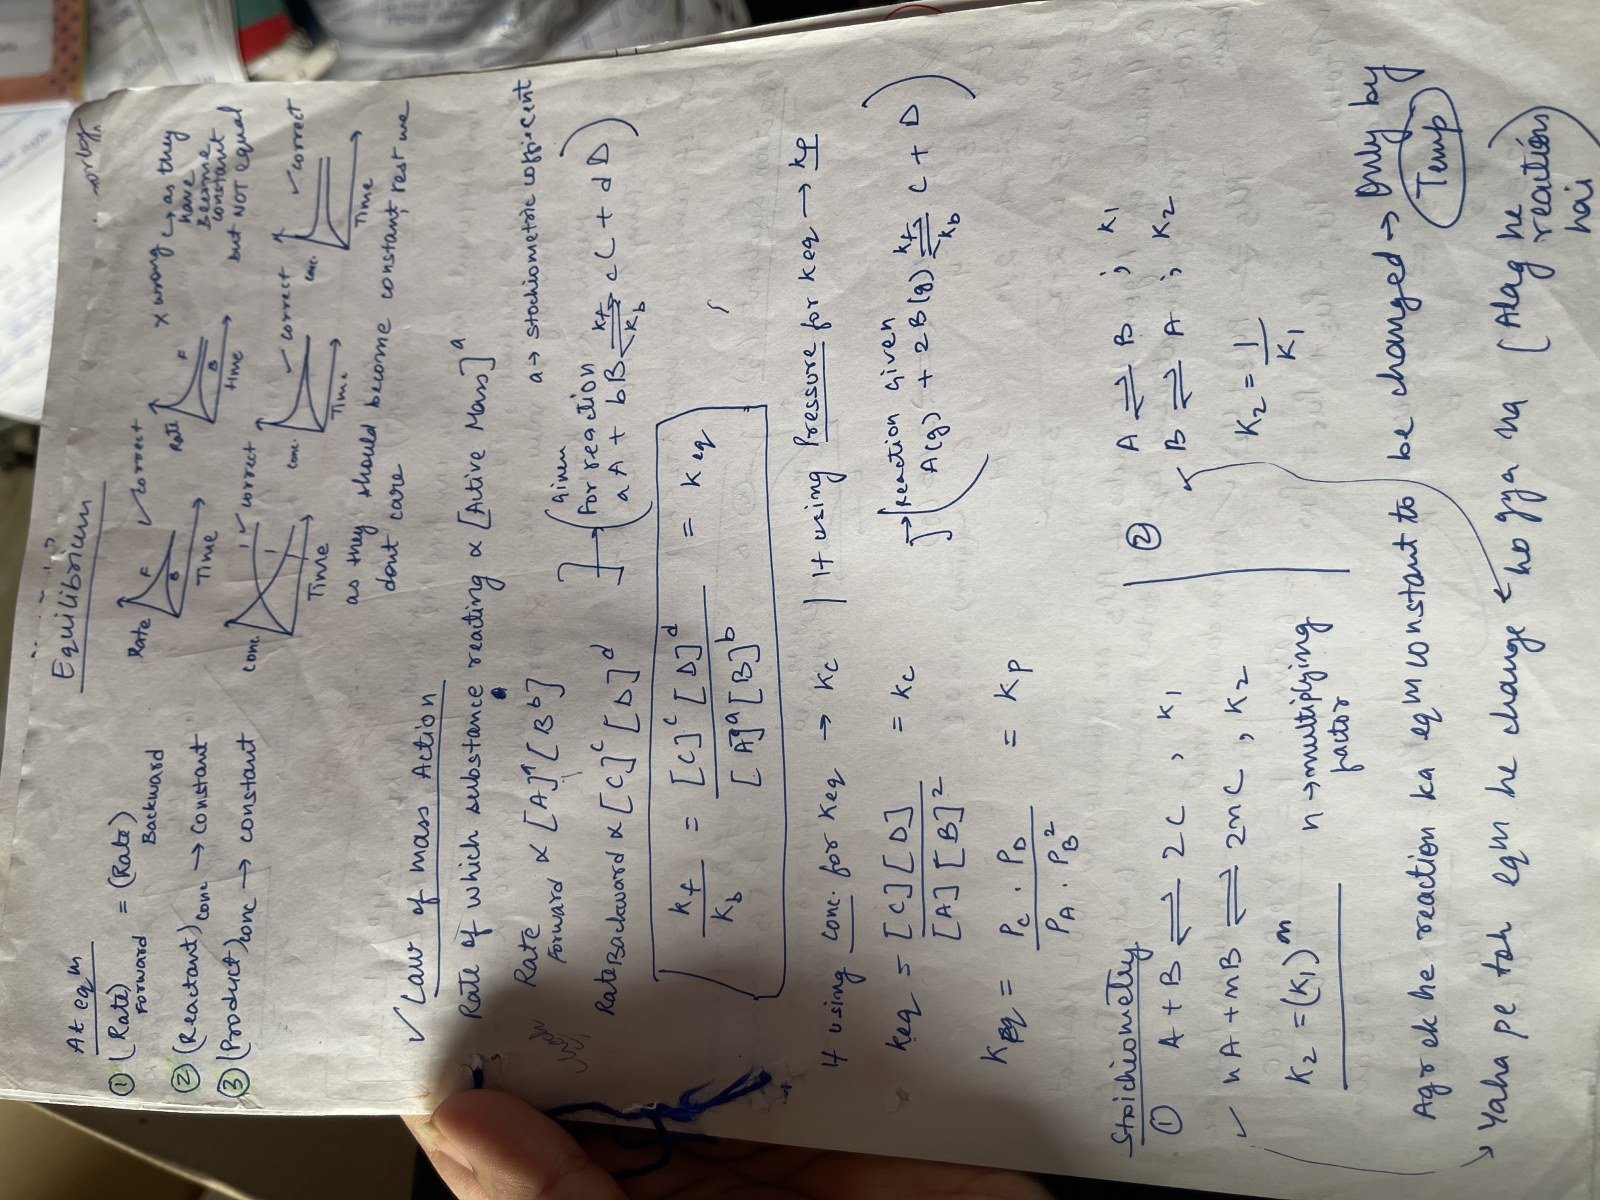 Equilibrium
At eqm
① (Rate)Forward = (Rate)Backward
② (Reactant)conc → constant
③ (Product)conc → constant
Rate F B Time ✓ correct
Rate F B time x wrong ↳ as they have Become constant but NOT equal
conc. Time ✓ correct
conc Time ✓ correct
conc. Time ✓ correct
as they should become constant, rest we
dont care
✓ Law of mass Action
Rate of which substance reacting ∝ [Active Mass]ᵃ
a → stochiometric cofficent
Rate Forward ∝ [A]ᵃ [Bᵇ]
Rate Backward ∝ [C]ᶜ [D]ᵈ
Given
for reaction
aA + bB ⇌ cC + dD
kf
kb
kf/kb = [C]ᶜ [D]ᵈ / [A]ᵃ [B]ᵇ = keq
If using conc. for keq → kc | If using Pressure for keq → kp
keq = [C][D] / [A][B]² = kc
Reaction given
A(g) + 2B(g) ⇌ C + D
kf
kb
Keq = Pc . PD / PA . PB² = KP
Stoichiometry
① A + B ⇌ 2C , K1
✓ nA + nB ⇌ 2nC , K2
K2 = (K1)ⁿ
n → multiplying factor
② A ⇌ B ; K1
B ⇌ A ; K2
K2 = 1/K1
Agr ek he reaction ka eqm constant to be changed → Only by Temp
↘ Yaha pe toh eqn he change ho gya na (Alag he reaction hai)